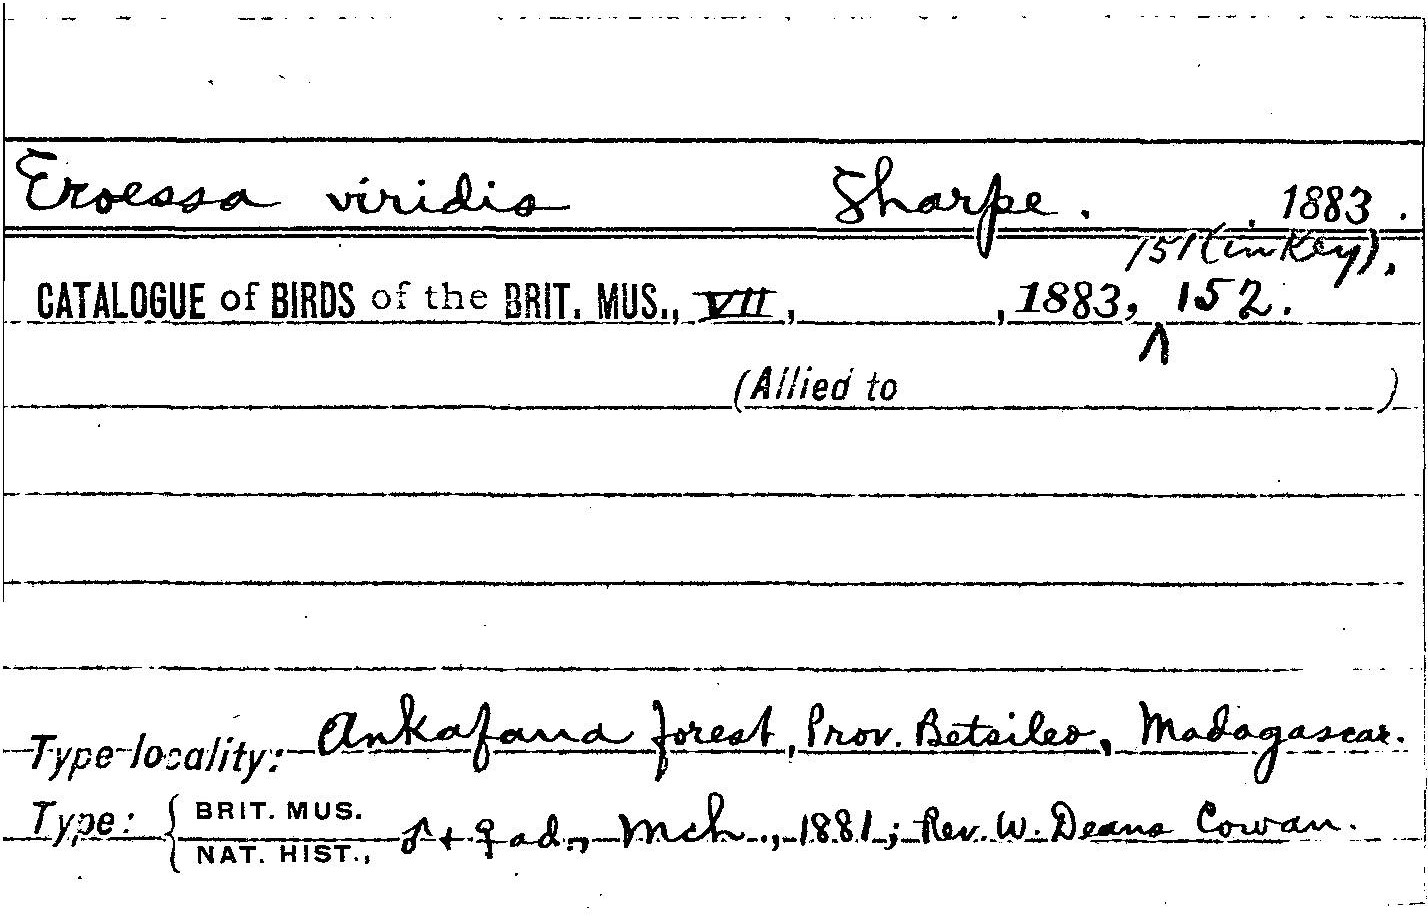 Eroessa viridis Sharpe. , 1883.
151 (in Key),
CATALOGUE of BIRDS of the BRIT. MUS., VII, , 1883, ^ 152.
(Allied to )
Type-locality: Ankafana forest, Prov. Betsileo, Madagascar.
Type: { BRIT. MUS.
NAT. HIST., ♂ + ♀ ad., Mch., 1881; Rev. W. Deans Cowan.